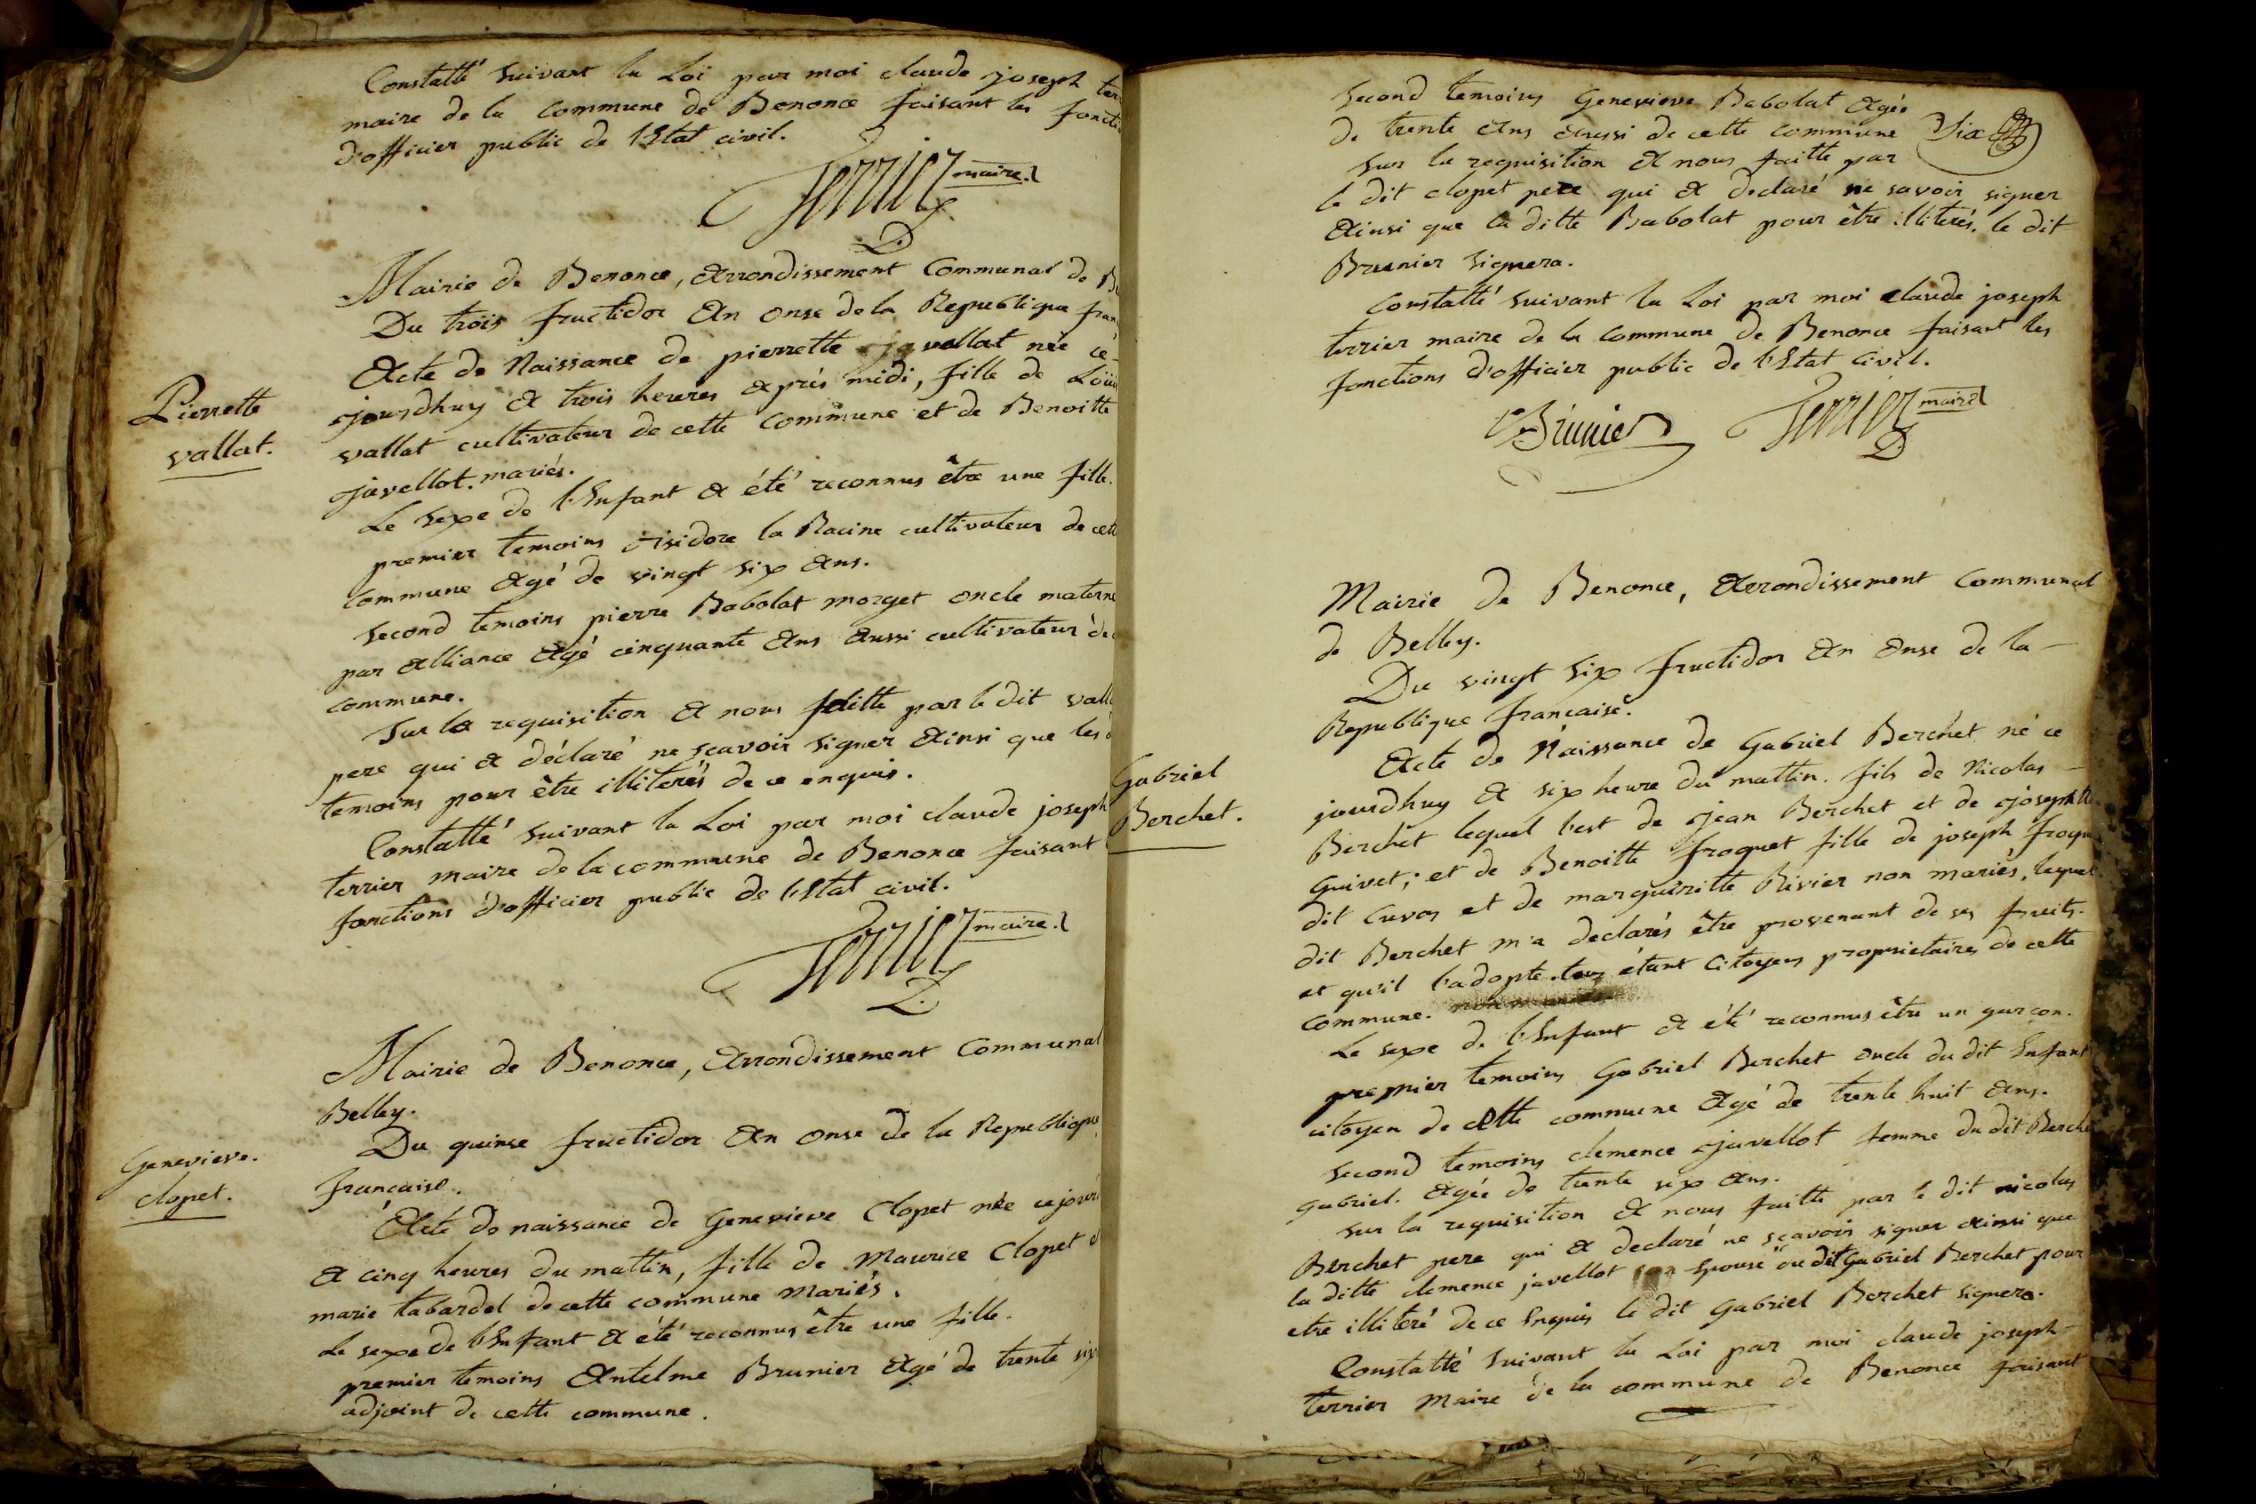 Constatté suivant la Loi par moi claude joseph ter
maire de la commune de Benonce faisant les foncti
d'officier public de l'Etat civil.
Terrier maire
Mairie de Benonce, arrondissement Communal de B
Du trois fructidor an onse de la Republique fran
Pierrette
vallat.
Acte de Naissance de pierrette vallat née ce
jourdhuy a trois heures après midi, fille de Loüi
vallat cultivateur de cette Commune et de Benoitte
javellot. mariés.
Le sexe de l'Enfant a été reconnus être une fille.
premier temoins isidore la Racine cultivateur de cett
commune agé de vingt six ans.
second temoins pierre Babolat morget oncle materne
par alliance agé cinquante ans aussi cultivateur de
commune.
Sur la requisition a nous faitte par le dit vall
pere qui a déclaré ne sçavoir signer ainsi que les
temoins pour être illiterés de ce enquis.
Constatté suivant la Loi par moi claude joseph
terrier maire de la commune de Benonce faisant
fonctions d'officier public de l'Etat civil.
Terrier maire
Mairie de Benonce, arrondissement Communal
Belley.
Du quinse fructidor an onse de la Republique
francaise.
Genevieve.
clopet.
Acte de naissance de Genevieve Clopet née ce jour
a cinq heures du mattin, fille de Maurice Clopet
marie tabardel de cette commune Mariés.
Le sexe de l'Enfant a été reconnus être une fille.
premier temoins Antelme Brunier agé de trente six
adjoint de cette commune.
second temoins Genevieve Babolat agée
de trente ans aussi de cette commune
Dix
sur la requisition a nous faitte par
le dit clopet pere qui a declaré ne savoir signer
ainsi que la ditte Babolat pour être illiterés. le dit
Brunier signera.
Constatté suivant la Loi par moi claude joseph
terrier maire de la commune de Benonce faisant les
fonctions d'officier public de l'Etat civil.
Brunier Terrier maire
Mairie de Benonce, arrondissement Communal
de Belley.
Du vingt six fructidor an onse de la
Republique francaise.
Gabriel
Berchet.
Acte de Naissance de Gabriel Berchet né ce
jourdhuy a six heure du mattin. fils de Nicolas
Berchet lequel l'est de jean Berchet et de josephte
Guivet; et de Benoitte froquet fille de joseph froque
dit Cuvas et de marguéritte Rivier non mariés, lequel
dit Berchet m'a declarés être provenant de ses fruits.
et qu'il l'adopte. tous étant Citoyens proprietaires de cette
commune.
Le sexe de l'Enfant a été reconnus être un garçon.
premier temoins Gabriel Berchet oncle du dit Enfant
citoyen de cette commune agé de trente huit ans.
second temoins clemence javellot femme du dit Berche
gabriel. agée de trente six ans.
sur la requisition a nous faitte par le dit nicolas
Berchet pere qui a declaré ne sçavoir signer ainsi que
la ditte clemence javellot Epouse du dit Gabriel Berchet pour
etre illiteré de ce Enquis le dit Gabriel Berchet signera.
Constatté suivant la Loi par moi claude joseph
terrier Maire de la commune de Benonce faisant